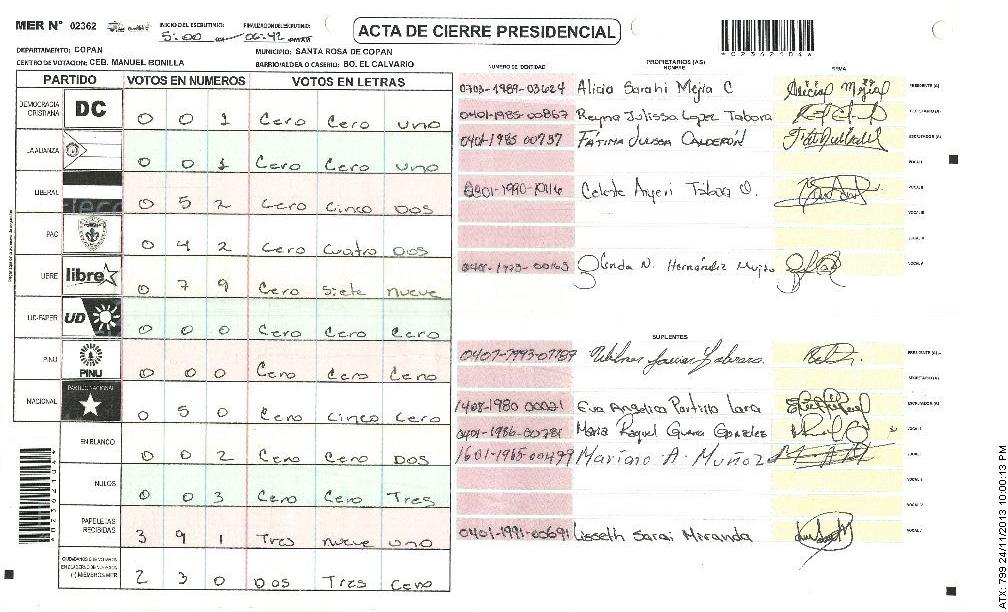 MER N° 02362
INICIO DEL ESCRUTINIO: FINALIZACION ESCRUTINIO:
5:00 06:42
ACTA DE CIERRE PRESIDENCIAL
*023621046*
DEPARTAMENTO: COPAN MUNICIPIO: SANTA ROSA DE COPAN
CENTRO DE VOTACION: CEB. MANUEL BONILLA BARRIO/ALDEA O CASERIO: BO. EL CALVARIO
PARTIDO VOTOS EN NUMEROS VOTOS EN LETRAS
DEMOCRACIA CRISTIANA DC 0 0 1 Cero Cero uno
LA ALIANZA 0 0 1 Cero Cero uno
LIBERAL 0 5 2 Cero Cinco Dos
PAC 0 4 2 Cero Cuatro Dos
LIBRE libre 0 7 9 Cero Siete nueve
UD-FAPER UD 0 0 0 Cero Cero Cero
PINU PINU 0 0 0 Cero Cero Cero
NACIONAL PARTIDO NACIONAL 0 5 0 Cero Cinco Cero
EN BLANCO 0 0 2 Cero Cero Dos
NULOS 0 0 3 Cero Cero Tres
PAPELETAS RECIBIDAS 3 9 1 Tres nueve uno
2 3 0 Dos Tres Cero
*023621046*
NUMERO DE IDENTIDAD PROPIETARIOS (AS) NOMBRE FIRMA
0703-1989-03624 Alicia Sarahi Mejia C PRESIDENTE (A)
0401-1985-00867 Reyna Julissa Lopez Tabora SECRETARIO (A)
0401-1985 00737 FÁTIMA JULISSA CALDERÓN ESCRUTADOR (A)
VOCAL I
Celeste Anyeri Tabora O. VOCAL II
VOCAL III
VOCAL IV
Glenda N. Hernández VOCAL V
SUPLENTES
PRESIDENTE (A)
SECRETARIO (A)
1408-1980 00021 Eva Angelica Portillo Lara ESCRUTADOR (A)
0401-1986-00781 Maria Raquel Guerra Gonzalez VOCAL I
1601-1965-00499 Mariano A. Muñoz
0401-1991-00691 Lisseth Sarai Miranda
ATX: 799 24/11/2013 10:00:13 PM